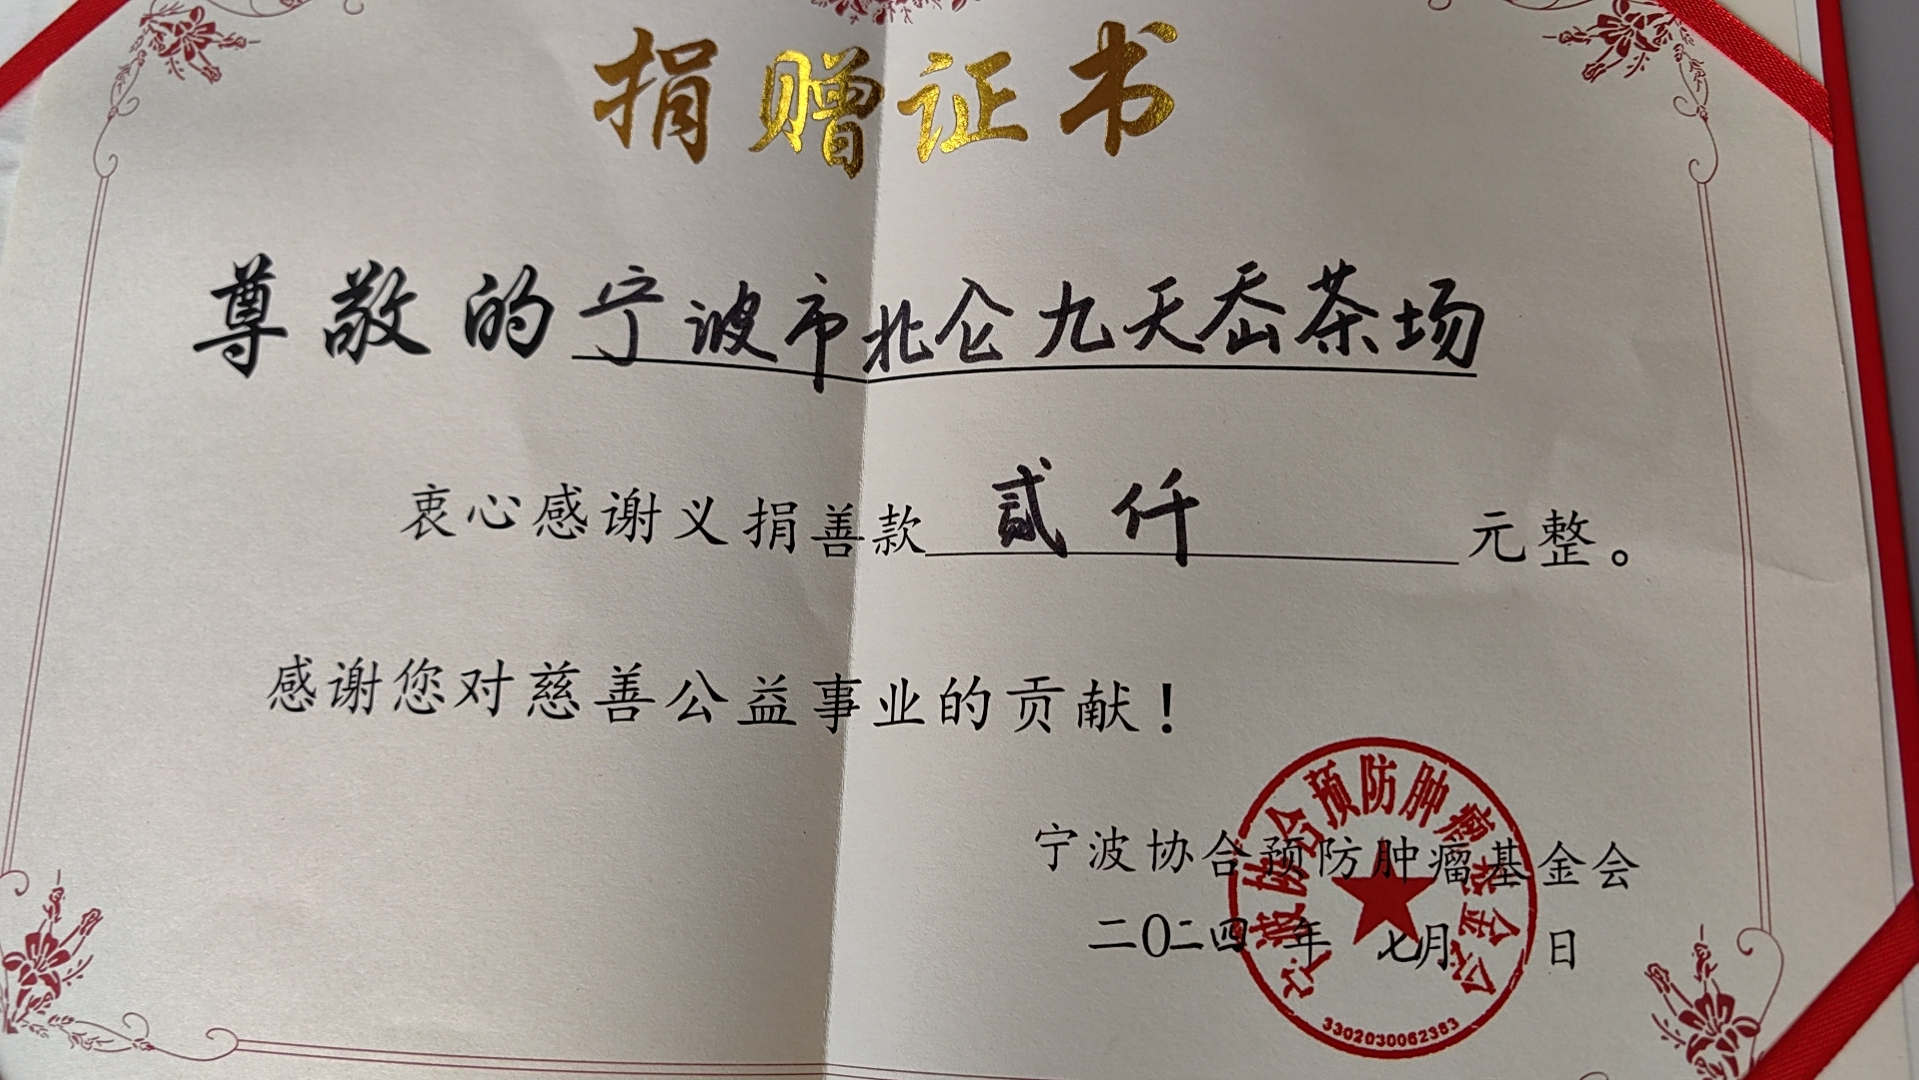 捐赠证书
尊敬的宁波市北仑九天岙茶场
衷心感谢义捐善款贰仟元整。
感谢您对慈善公益事业的贡献！
宁波协合预防肿瘤基金会
二〇二四年七月 日
宁波协合预防肿瘤基金会
3302030062363